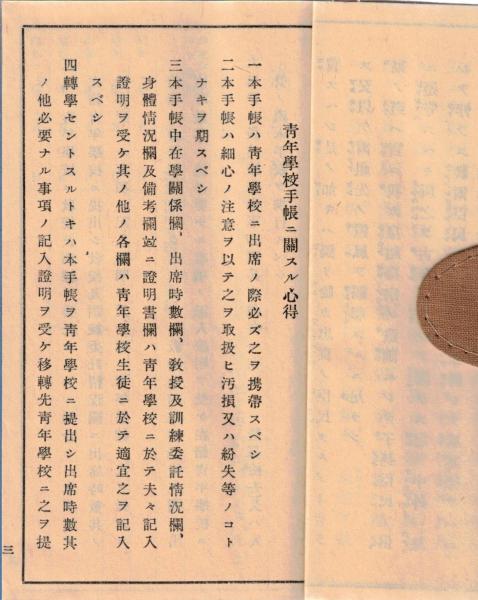 青年學校手帳ニ關スル心得
一本手帳ハ青年學校ニ出席ノ際必ズ之ヲ携帶スベシ
二本手帳ハ細心ノ注意ヲ以テ之ヲ取扱ヒ汚損又ハ紛失等ノコト
ナキヲ期スベシ
三本手帳中在學關係欄、出席時數欄、敎授及訓練委託情況欄、
身體情況欄及備考欄竝ニ證明書欄ハ青年學校ニ於テ夫々記入
證明ヲ受ケ其ノ他ノ各欄ハ青年學校生徒ニ於テ適宜之ヲ記入
スベシ
四轉學セントスルトキハ本手帳ヲ青年學校ニ提出シ出席時數其
ノ他必要ナル事項ノ記入證明ヲ受ケ移轉先青年學校ニ之ヲ提
三